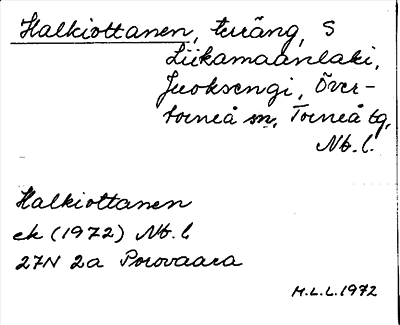 Halkiottanen, teräng, S
Liikamaanlaki,
Juoksengi, Över-
torneå sn, Torneå tg,
Nb. l.
Halkiottanen
ek (1972) Nb. l
27N 2a Porovaara
M.L.L. 1972